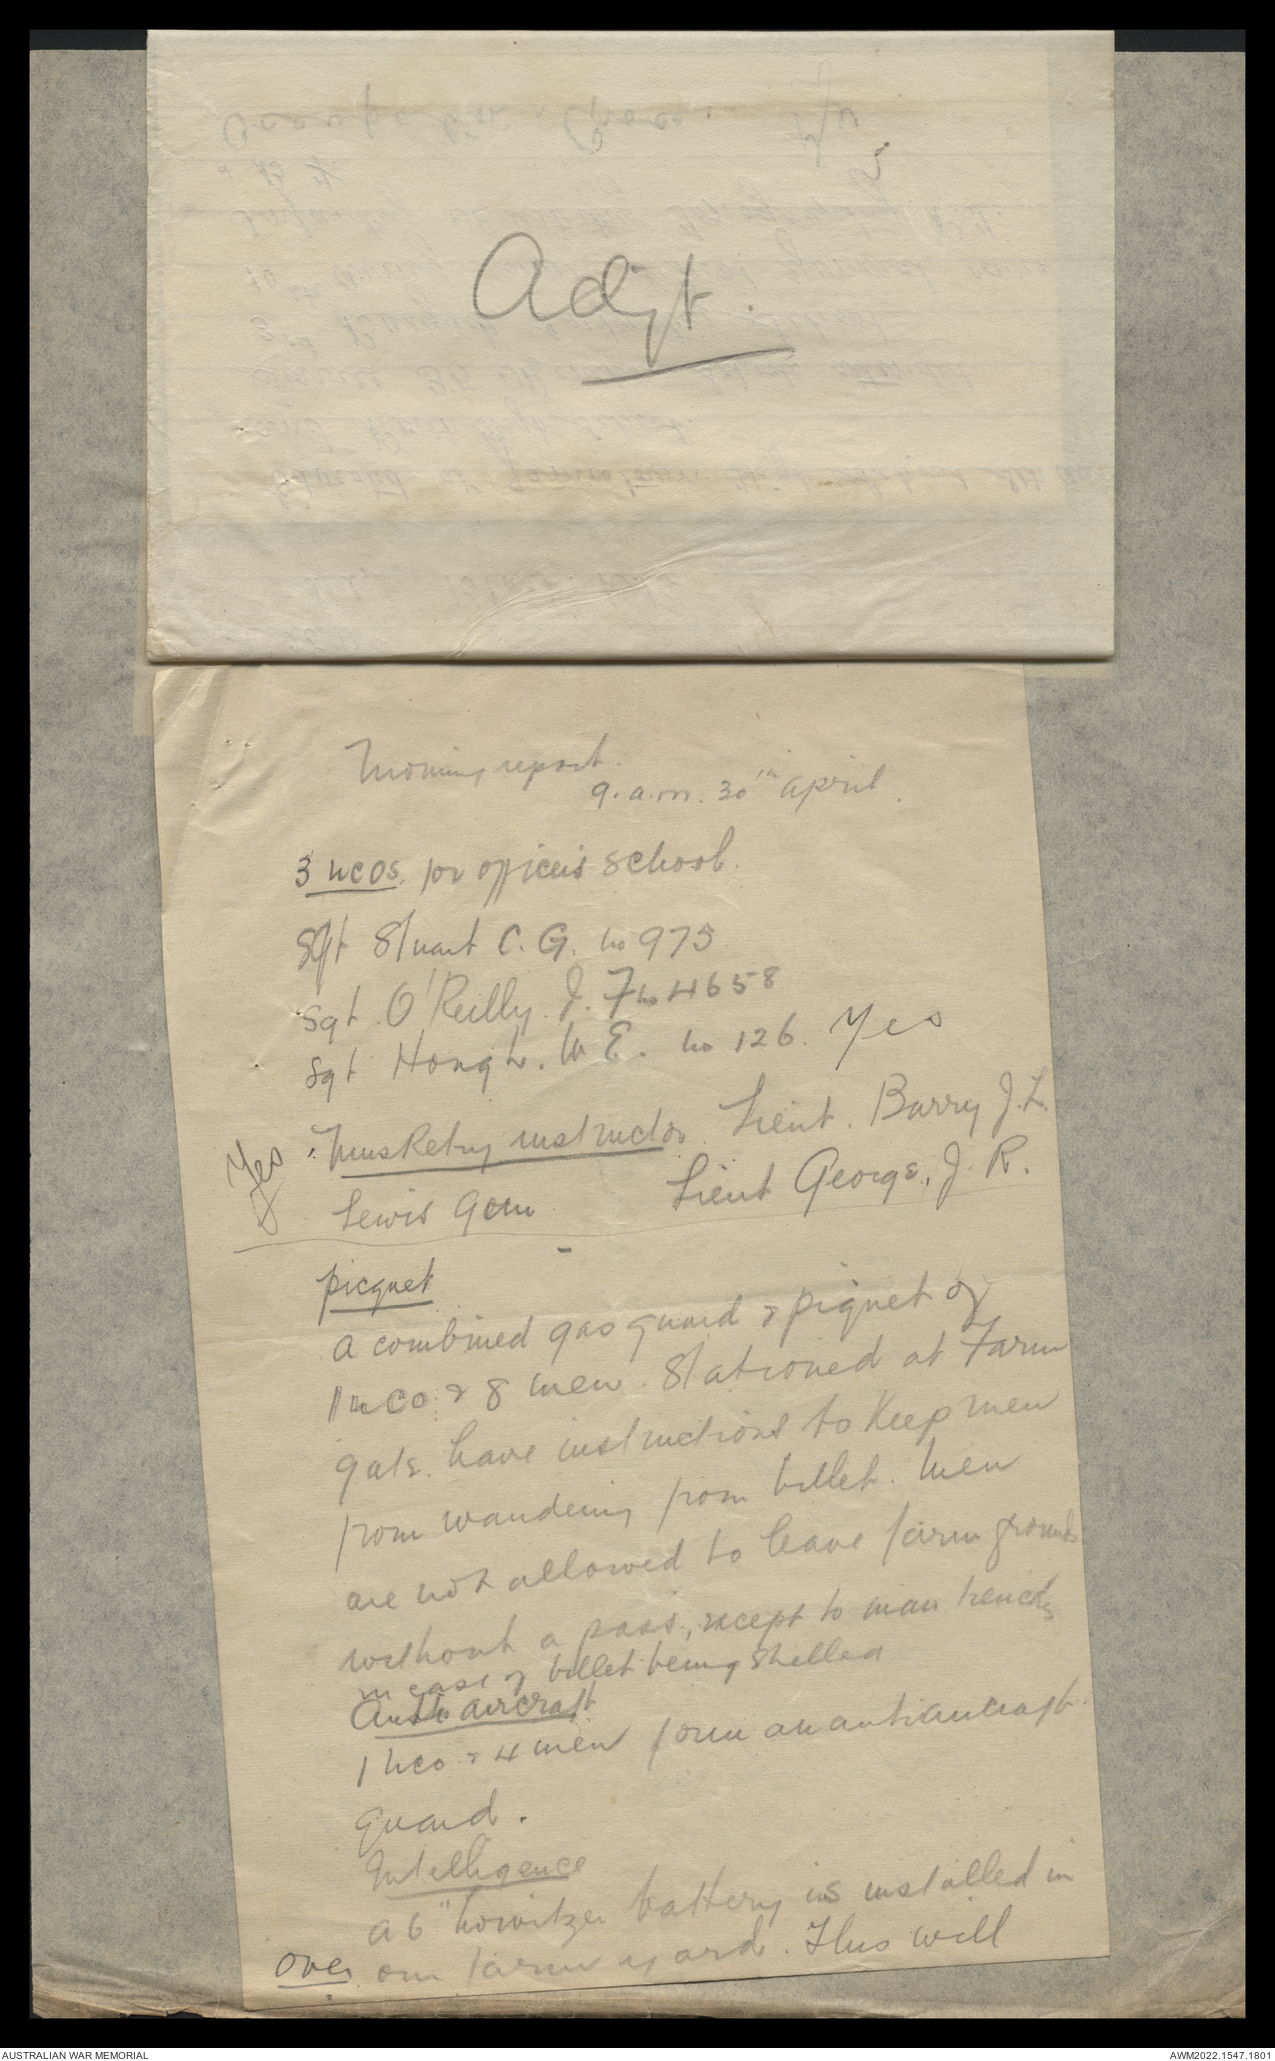 Adjt.
Morning report.
9. a.m. 30th April.
3 NCOs. for officers school.
Sgt Stuart C. G. No 975
Sgt. O'Reilly. J. F No 4658
Sgt Hough. W E. No 126. Yes
Yes
Musketry instructor. Lieut. Barry J. L.
Lewis Gun Lieut George, J. R.
picquet
A combined gas guard & piquet of
1 NCO. & 8 men. Stationed at Farm
gate. have instructions to keep men
from wandering from billet. Men
are not allowed to leave farm grounds
without a pass, except to man trenches
in case of billet being shelled
Anti aircraft.
1 Nco & 4 men form an antiaircraft
guard.
Intelligence
A 6" howitzer battery is installed in
our farm yard. This will
Over
AUSTRALIAN WAR MEMORIAL
AWM2022.1547.1801